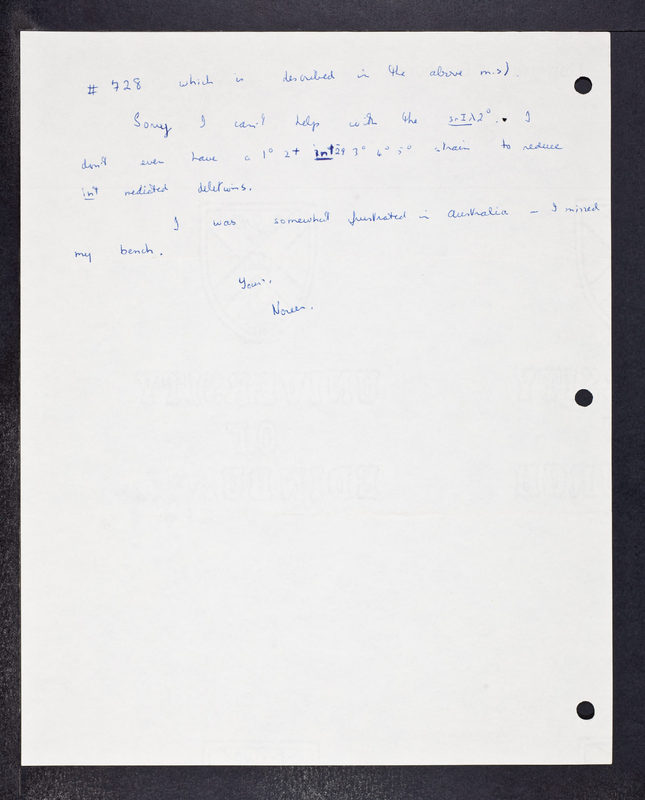 # 728 which is described in the above m.s).
Sorry I can't help with the srIλ2°. I
don't even have a 1° 2+ int29 3° 4° 5° strain to reduce
int mediated deletions.
I was somewhat frustrated in Australia – I missed
my bench.
Yours,
Noreen.
UNIVERSITY
OF
EDINBURGH